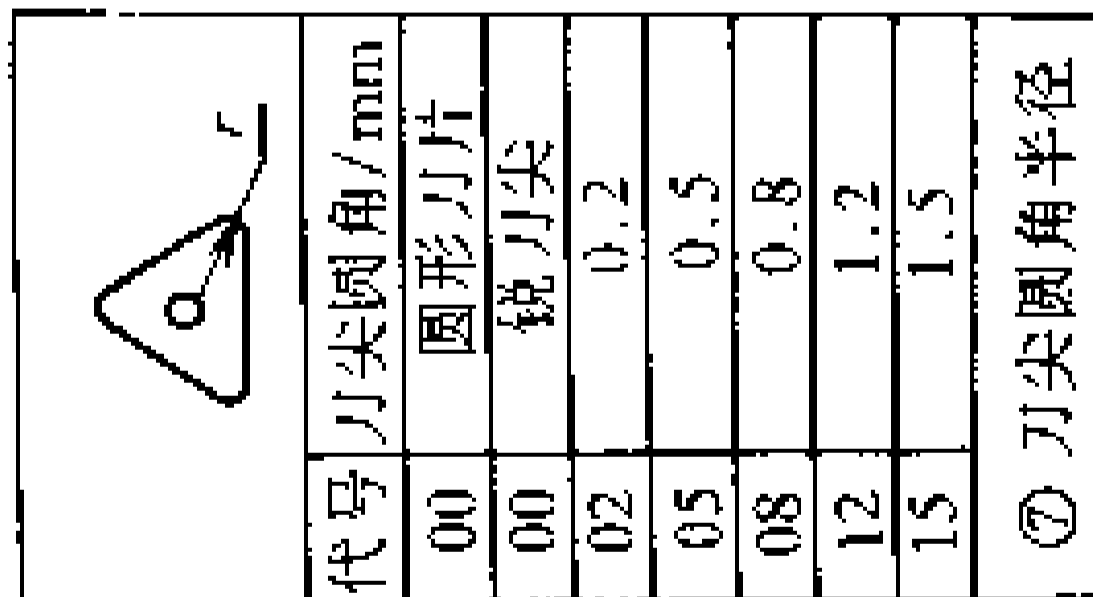 r
代号 刀尖圆角/mm
00 圆形刀片
00 锐刀尖
02 0.2
05 0.5
08 0.8
12 1.2
15 1.5
⑦ 刀尖圆角半径